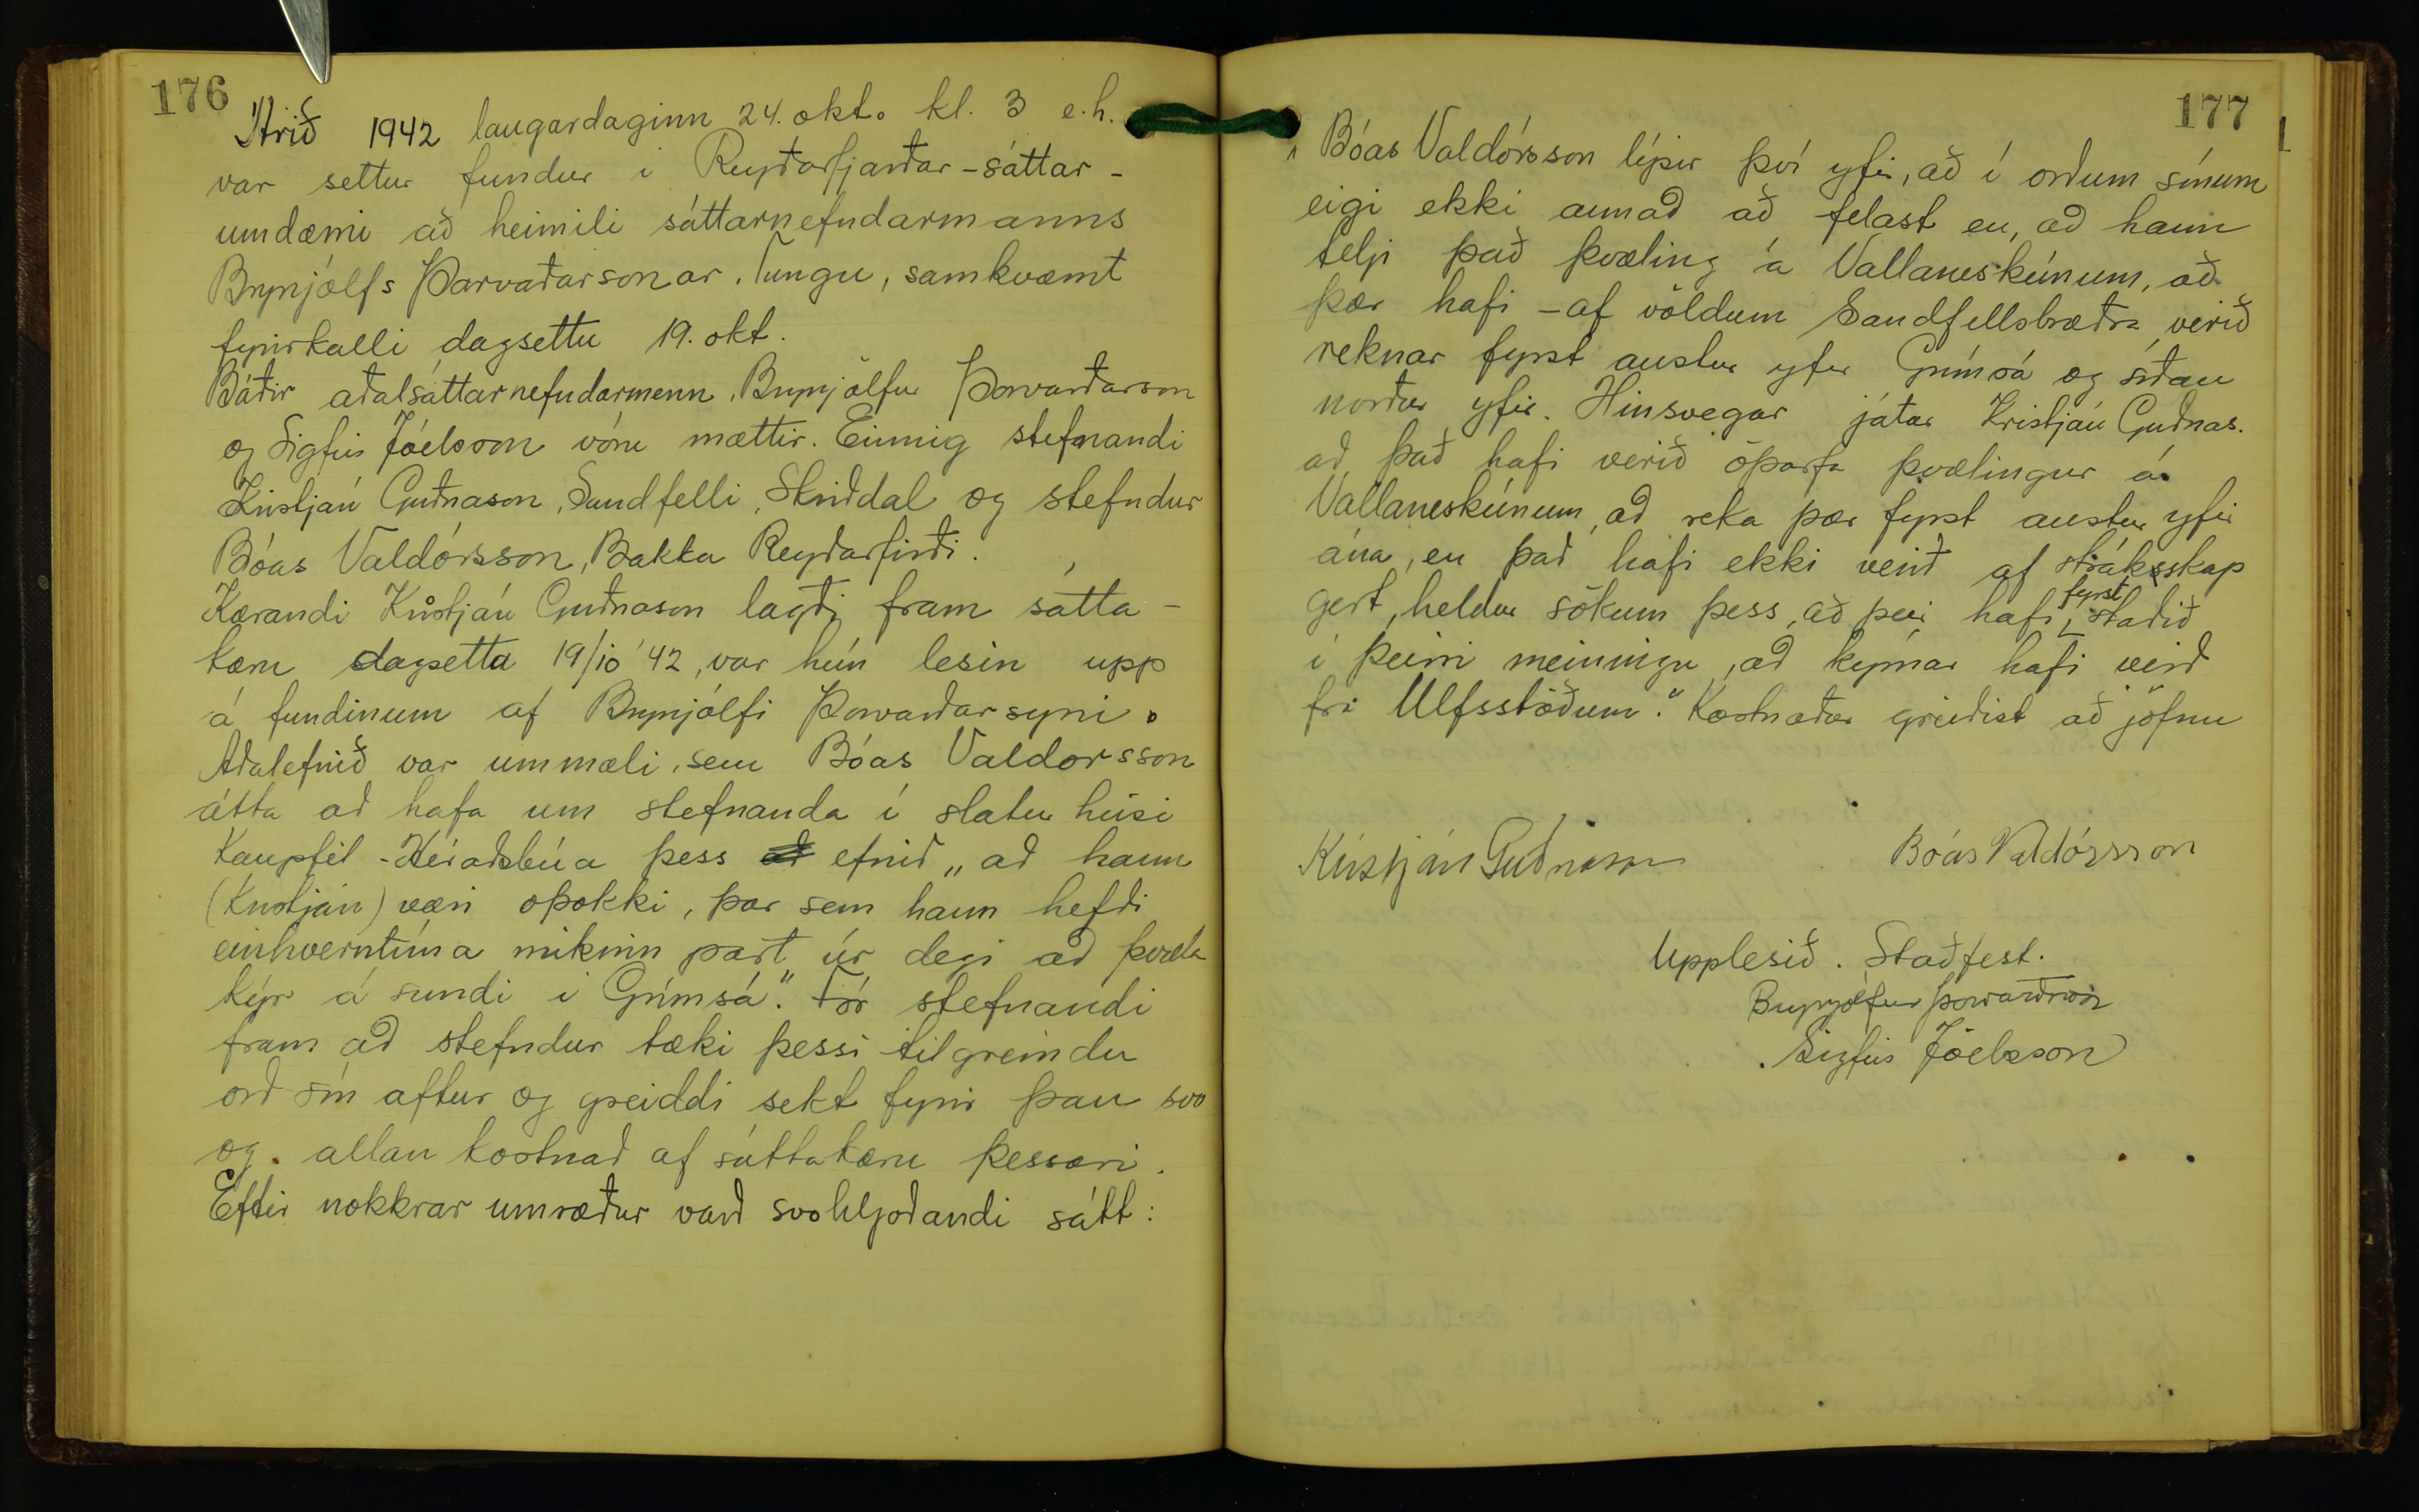 176
Árið 1942 laugardaginn 24. okt. kl. 3 e.h.
var settur fundur í Reyðarfjarðar-sáttar-
umdæmi að heimili sáttarnefndarmanns
Brynjólfs Þorvarðarsonar, Tungu, samkvæmt
fyrirkalli dagsettu 19. okt.
Báðir aðalsáttarnefndarmenn, Brynjólfur Þorvarðarson
og Sigfús Jóelsson vóru mættir. Einnig stefnandi
Kristján Guðnason, Sandfelli, Skriðdal og stefndur
Bóas Valdórsson, Bakka Reyðarfirði.
Kærandi Kristján Guðnason lagði fram sátta-
kæru dagsetta 19/10 '42, var hún lesin upp
á fundinum af Brynjólfi Þorvarðarsyni.
Aðalefnið var ummæli, sem Bóas Valdorsson
átta að hafa um stefnanda í slátur húsi
Kaupfél-Héraðsbúa þess að efnið „að hann
(Kristján) væri óþokki, þar sem hann hefði
einhverntíma mikinn part úr degi að þvæla
kýr á sundi í Grímsá." Fór stefnandi
fram að stefndur tæki þessi tilgreindu
orð sín aftur og greiddi sekt fyrir þau svo
og allan kostnað af sáttakæru þessari.
Eftir nokkrar umræður varð svohljóðandi sátt:
177
„Bóas Valdórsson lýsir því yfir, að í orðum sínum
eigi ekki annað að felast en, að hann
telji það þvæling á Vallaneskúnum, að
þær hafi - af völdum Sandfellsbræðra verið
reknar fyrst austur yfir Grímsá og síðan
norður yfir. Hinsvegar játar Kristján Guðnas.
að það hafi verið óþarfa þvælingur á
Vallaneskúnum, að reka þær fyrst austur yfir
ána, en það hafi ekki verið af stráksskap
gert, heldur sökum þess, að þeir hafi fyrst staðið
í þeirri meiningu, að kýrnar hafi verið
frá Ulfsstöðum." Kostnaður greiðist að jöfnu
Kristján Guðnason Bóas Valdórsson
Upplesið. Staðfest.
Brynjólfur Þorvarðarson
Sigfús Jóelsson